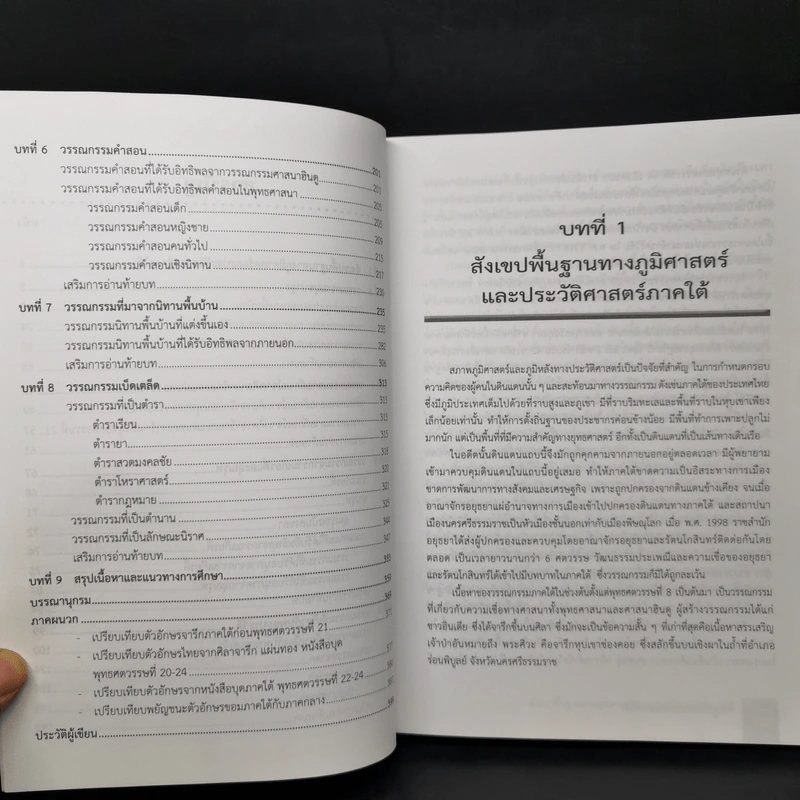 บทที่ 6 วรรณกรรมคำสอน 201
วรรณกรรมคำสอนที่ได้รับอิทธิพลจากวรรณกรรมศาสนาฮินดู
วรรณกรรมคำสอนที่ได้รับอิทธิพลคำสอนในพุทธศาสนา 205
วรรณกรรมคำสอนเด็ก 205
วรรณกรรมคำสอนหญิงชาย 209
วรรณกรรมคำสอนคนทั่วไป 215
วรรณกรรมคำสอนเชิงนิทาน 217
เสริมการอ่านท้ายบท 230
บทที่ 7 วรรณกรรมที่มาจากนิทานพื้นบ้าน 235
วรรณกรรมนิทานพื้นบ้านที่แต่งขึ้นเอง
วรรณกรรมนิทานพื้นบ้านที่ได้รับอิทธิพลจากภายนอก
เสริมการอ่านท้ายบท
บทที่ 8 วรรณกรรมเบ็ดเตล็ด 313
วรรณกรรมที่เป็นตำรา 313
ตำราเรียน 315
ตำรายา 315
ตำราสวดมงคลชัย 319
ตำราโหราศาสตร์ 320
ตำรากฎหมาย 325
วรรณกรรมที่เป็นตำนาน
วรรณกรรมที่เป็นลักษณะนิราศ
เสริมการอ่านท้ายบท
บทที่ 9 สรุปเนื้อหาและแนวทางการศึกษา
บรรณานุกรม
ภาคผนวก
- เปรียบเทียบตัวอักษรจารึกภาคใต้ก่อนพุทธศตวรรษที่ 21
- เปรียบเทียบตัวอักษรไทยจากศิลาจารึก แผ่นทอง หนังสือบุด
พุทธศตวรรษที่ 20-24
- เปรียบเทียบตัวอักษรจากหนังสือบุดภาคใต้ พุทธศตวรรษที่ 22-24
- เปรียบเทียบพยัญชนะตัวอักษรขอมภาคใต้กับภาคกลาง
ประวัติผู้เขียน
บทที่ 1
สังเขปพื้นฐานทางภูมิศาสตร์
และประวัติศาสตร์ภาคใต้
สภาพภูมิศาสตร์และภูมิหลังทางประวัติศาสตร์เป็นปัจจัยที่สำคัญ ในการกำหนดกรอบ
ความคิดของผู้คนในดินแดนนั้น ๆ และสะท้อนมาทางวรรณกรรม ดังเช่นภาคใต้ของประเทศไทย
ซึ่งมีภูมิประเทศเต็มไปด้วยที่ราบสูงและภูเขา มีที่ราบริมทะเลและพื้นที่ราบในหุบเขาเพียง
เล็กน้อยเท่านั้น ทำให้การตั้งถิ่นฐานของประชากรค่อนข้างน้อย มีพื้นที่ทำการเพาะปลูกไม่
มากนัก แต่เป็นพื้นที่ที่มีความสำคัญทางยุทธศาสตร์ อีกทั้งเป็นดินแดนที่เป็นเส้นทางเดินเรือ
ในอดีตนั้นดินแดนแถบนี้จึงมักถูกคุกคามจากภายนอกอยู่ตลอดเวลา มีผู้พยายาม
เข้ามาควบคุมดินแดนในแถบนี้อยู่เสมอ ทำให้ภาคใต้ขาดความเป็นอิสระทางการเมือง
ขาดการพัฒนาการทางสังคมและเศรษฐกิจ เพราะถูกปกครองจากดินแดนข้างเคียง จนเมื่อ
อาณาจักรอยุธยาแผ่อำนาจทางการเมืองเข้าไปปกครองดินแดนทางภาคใต้ และสถาปนา
เมืองนครศรีธรรมราชเป็นหัวเมืองชั้นนอกเท่ากับเมืองพิษณุโลก เมื่อ พ.ศ. 1998 ราชสำนัก
อยุธยาได้ส่งผู้ปกครองและควบคุมโดยอาณาจักรอยุธยาและรัตนโกสินทร์ติดต่อกันโดย
ตลอด เป็นเวลายาวนานกว่า 6 ศตวรรษ วัฒนธรรมประเพณีและความเชื่อของอยุธยา
และรัตนโกสินทร์ได้เข้าไปมีบทบาทในภาคใต้ ซึ่งวรรณกรรมก็มิได้ถูกละเว้น
เนื้อหาของวรรณกรรมภาคใต้ในช่วงต้นตั้งแต่พุทธศตวรรษที่ 8 เป็นต้นมา เป็นวรรณกรรม
ที่เกี่ยวกับความเชื่อทางศาสนาทั้งพุทธศาสนาและศาสนาฮินดู ผู้สร้างวรรณกรรมได้แก่
ชาวอินเดีย ซึ่งได้จารึกขึ้นบนศิลา ซึ่งมักจะเป็นข้อความสั้น ๆ ที่เก่าที่สุดคือเนื้อหาสรรเสริญ
เจ้าป่าอันหมายถึง พระศิวะ คือจารึกหุบเขาช่องคอย ซึ่งสลักขึ้นบนเชิงผาในถ้ำที่อำเภอ
ร่อนพิบูลย์ จังหวัดนครศรีธรรมราช